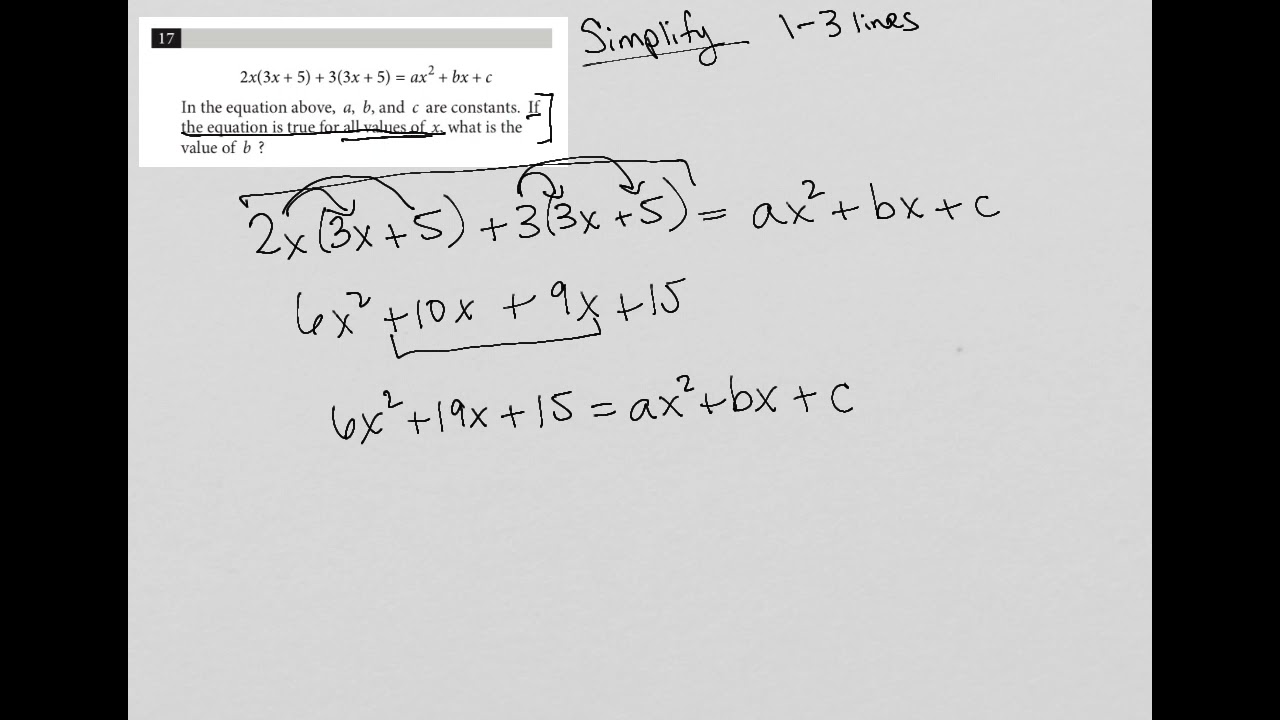 17
2x(3x + 5) + 3(3x + 5) = ax² + bx + c
In the equation above, a, b, and c are constants. If
the equation is true for all values of x, what is the
value of b ?
Simplify 1-3 lines
2x(3x+5) + 3(3x+5) = ax² + bx + c
6x² +10x + 9x +15
6x² +19x + 15 = ax² +bx + c